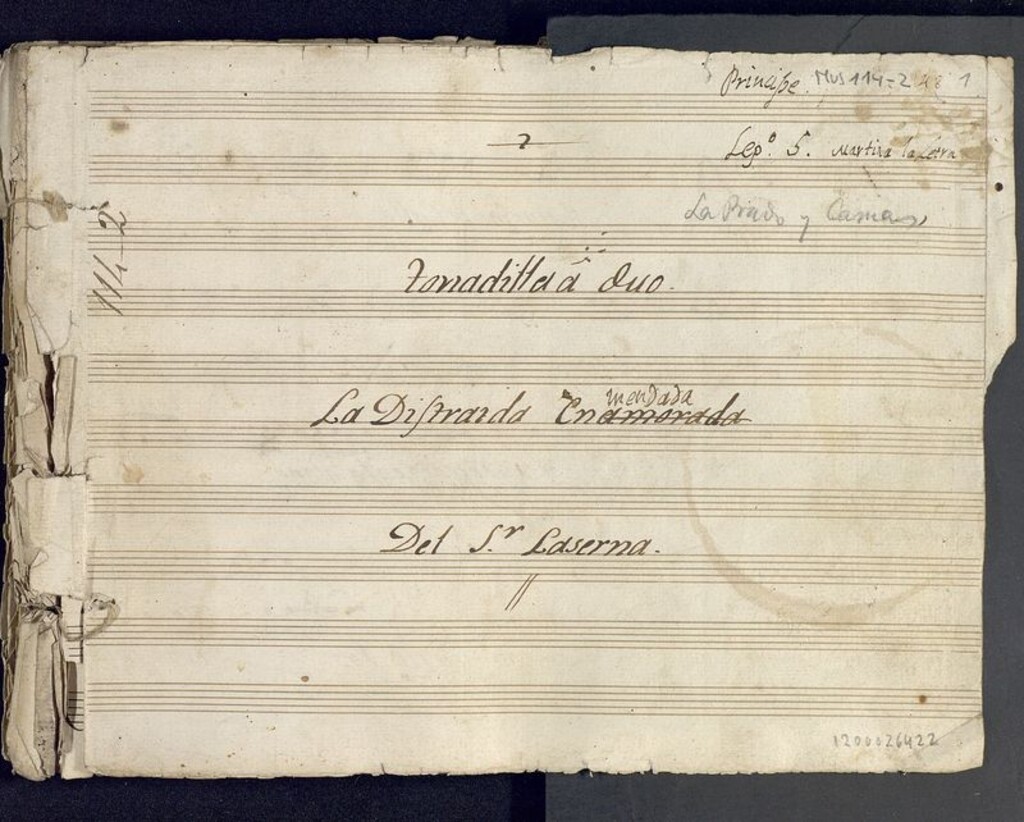 Principe. Mus 114-2 1
Leg.º 5. Martina la letra
La Prado y Camas
114-2
tonadilla â duo.
mendada
La Distraida Enamorada
Del S.r Laserna.
1200026422